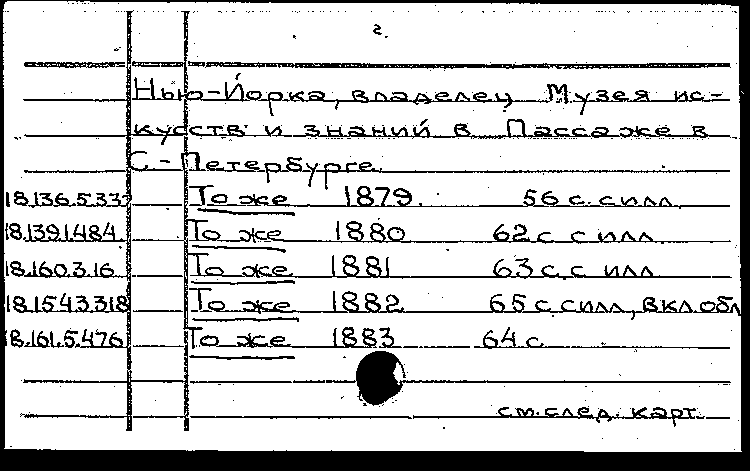 2.
Нью-Йорка, владелец Музея ис-
кусств и знаний в Пассаже в
С.-Петербурге.
18.136.5.33 То же 1879. 56 с. с илл.
18.139.1.484. То же 1880 62 с. с илл.
18.160.3.16 То же 1881 63 с. с илл
18.154.3.318 То же 1882 65 с. с илл., вкл. обл
18.161.5.476 То же 1883 64 с.
см. след. карт.